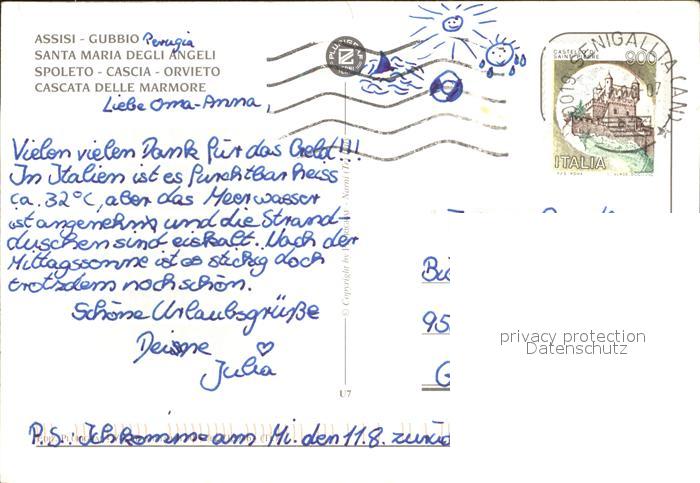 ASSISI - GUBBIO Perugia
SANTA MARIA DEGLI ANGELI
SPOLETO - CASCIA - ORVIETO
CASCATA DELLE MARMORE
Liebe Oma-Anna,
Vielen vielen Dank für das Geld!!!
In Italien ist es furchtbar heiss
ca. 32°C, aber das Meerwasser
ist angenehm und die Strand-
duschen sind eiskalt. Nach der
Mittagssonne ist es stickig doch
trotzdem noch schön.
Schöne Urlaubsgrüße
Deine
Julia
P.S.: Ich komme am Mi. den 11.8. zurüc
U7
© Copyright by
Narni (T
CASTELLO DI
900
SENIGALLIA (AN)
ITALIA
Bü
95
G
privacy protection
Datenschutz